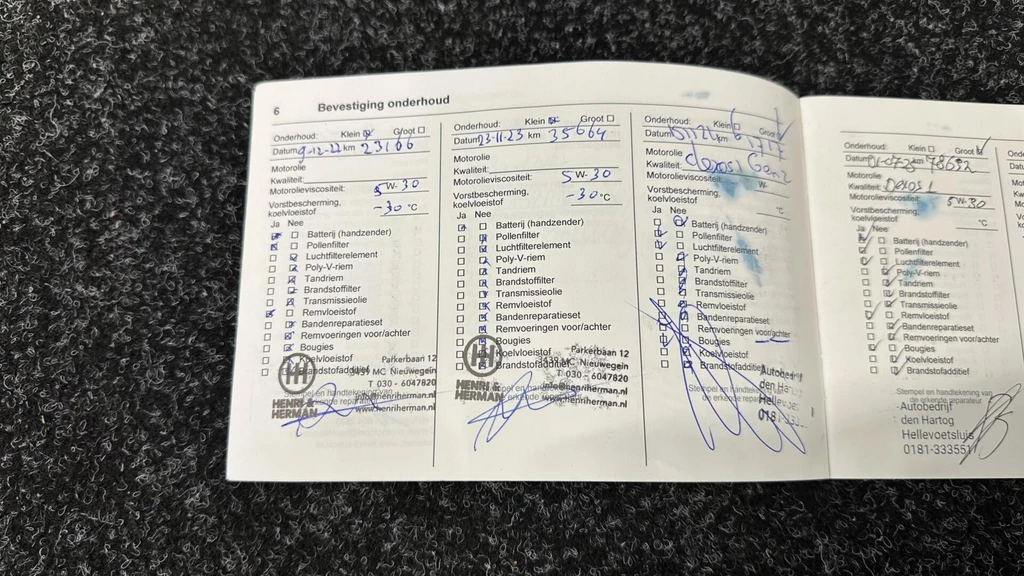 6 Bevestiging onderhoud
Onderhoud: Klein Groot
Datum 9-12-22 km 23166
Motorolie
Kwaliteit:
Motorolieviscositeit: 5W-30
Vorstbescherming,
koelvloeistof -30 °C
Ja Nee
Batterij (handzender)
Pollenfilter
Luchtfilterelement
Poly-V-riem
Tandriem
Brandstoffilter
Transmissieolie
Remvloeistof
Bandenreparatieset
Remvoeringen voor/achter
Bougies
Koelvloeistof
Brandstofadditief
Stempel en handtekening van
HENRI &
HERMAN
Parkerbaan 12
3439 MC Nieuwegein
T 030 - 6047820
info@henriherman.nl
www.henriherman.nl
Onderhoud: Klein Groot
Datum 23-11-23 km 35664
Motorolie
Kwaliteit:
Motorolieviscositeit: 5W-30
Vorstbescherming,
koelvloeistof -30 °C
Ja Nee
Batterij (handzender)
Pollenfilter
Luchtfilterelement
Poly-V-riem
Tandriem
Brandstoffilter
Transmissieolie
Remvloeistof
Bandenreparatieset
Remvoeringen voor/achter
Bougies
Koelvloeistof
Brandstofadditief
HENRI &
HERMAN
Parkerbaan 12
3439 MC Nieuwegein
T 030 - 6047820
info@henriherman.nl
www.henriherman.nl
Onderhoud: Klein Groot
Datum km 61717
Motorolie
Kwaliteit: dexos1 Gen2
Motorolieviscositeit: W-
Vorstbescherming,
koelvloeistof °C
Ja Nee
Batterij (handzender)
Pollenfilter
Luchtfilterelement
Poly-V-riem
Tandriem
Brandstoffilter
Transmissieolie
Remvloeistof
Bandenreparatieset
Remvoeringen voor/achter
Bougies
Koelvloeistof
Brandstofadditief
Stempel en handtekening
de erkende
Autobedrijf
den Ha
Hellevoet
0181-333
Onderhoud: Klein Groot
Datum km 78692
Motorolie
Kwaliteit: Dexos 1
Motorolieviscositeit: 5W-30
Vorstbescherming,
koelvloeistof °C
Ja Nee
Batterij (handzender)
Pollenfilter
Luchtfilterelement
Poly-V-riem
Tandriem
Brandstoffilter
Transmissieolie
Remvloeistof
Bandenreparatieset
Remvoeringen voor/achter
Bougies
Koelvloeistof
Brandstofadditief
Stempel en handtekening van
de erkende reparateur
Autobedrijf
den Hartog
Hellevoetsluis
0181-333551